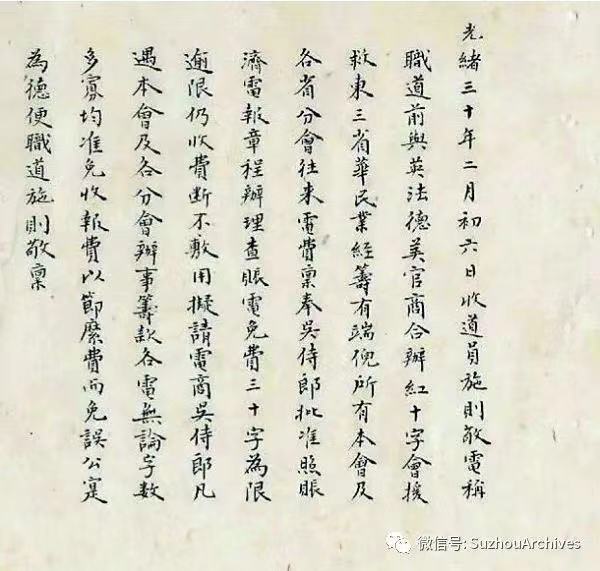 光緒三十年二月初六日收道員施則敬電稱
職道前與英法德美官商合辦紅十字會援
救東三省華民業經籌有端倪所有本會及
各省分會往来電費稟奉吳侍郎批准照賬
濟電報章程辦理查賬電免費三十字為限
逾限仍收費断不敷用擬請電商吳侍郎凡
遇本會及各分會辦事籌款各電無論字数
多寡均准免收報費以節縻費而免誤公寔
為德便職道施則敬稟
微信号: SuzhouArchives